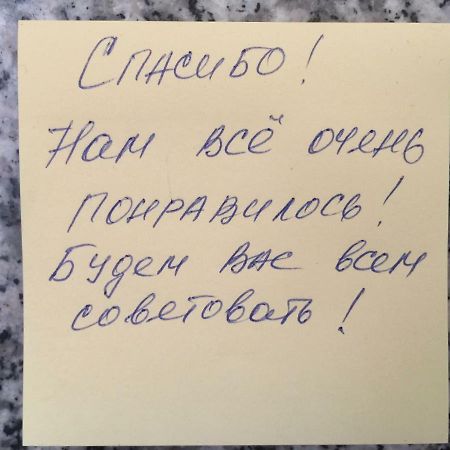 Спасибо!
Нам всё очень
понравилось!
Будем вас всем
советовать!